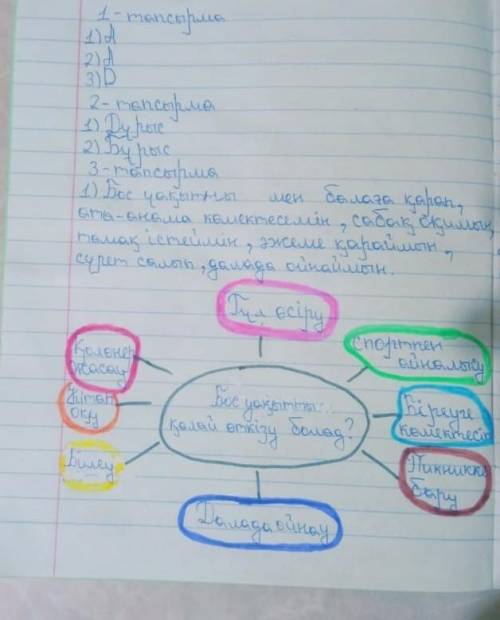 1-тапсырма
1) А
2) А
3) D
2-тапсырма
1) Дұрыс
2) Бұрыс
3-тапсырма
1) Бос уақытты мен балаға қарап,
ата-анама көмектесемін, сабақ оқимын,
тамақ істеймін, әжеме қараймын,
сурет салып, далада ойнаймын.
Гүл өсіру
Қолөнер
жасау
спортпен
айналысу
Кітап
оқу
Бос уақытты
қалай өткізу болад?
Біреуге
көмектесіп
Билеу
Пикникке
бару
Далада ойнау